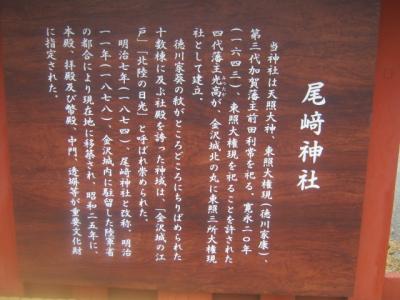 尾﨑神社
当神社は天照大神、東照大権現(徳川家康)、
第三代加賀藩主前田利常を祀る。寛永二〇年
(一六四三)、東照大権現を祀ることを許された
四代藩主光高が、金沢城北の丸に東照三所大権現
社として建立。
徳川家葵の紋がところどころにちりばめられた
十数棟に及ぶ社殿を誇った神域は、「金沢城の江
戸」「北陸の日光」と呼ばれ崇められた。
明治七年(一八七四)、尾﨑神社と改称、明治
一一年(一八七八)、金沢城内に駐留した陸軍省
の都合により現在地に移築され、昭和二五年に、
本殿、拝殿及び幣殿、中門、透塀等が重要文化財
に指定された。